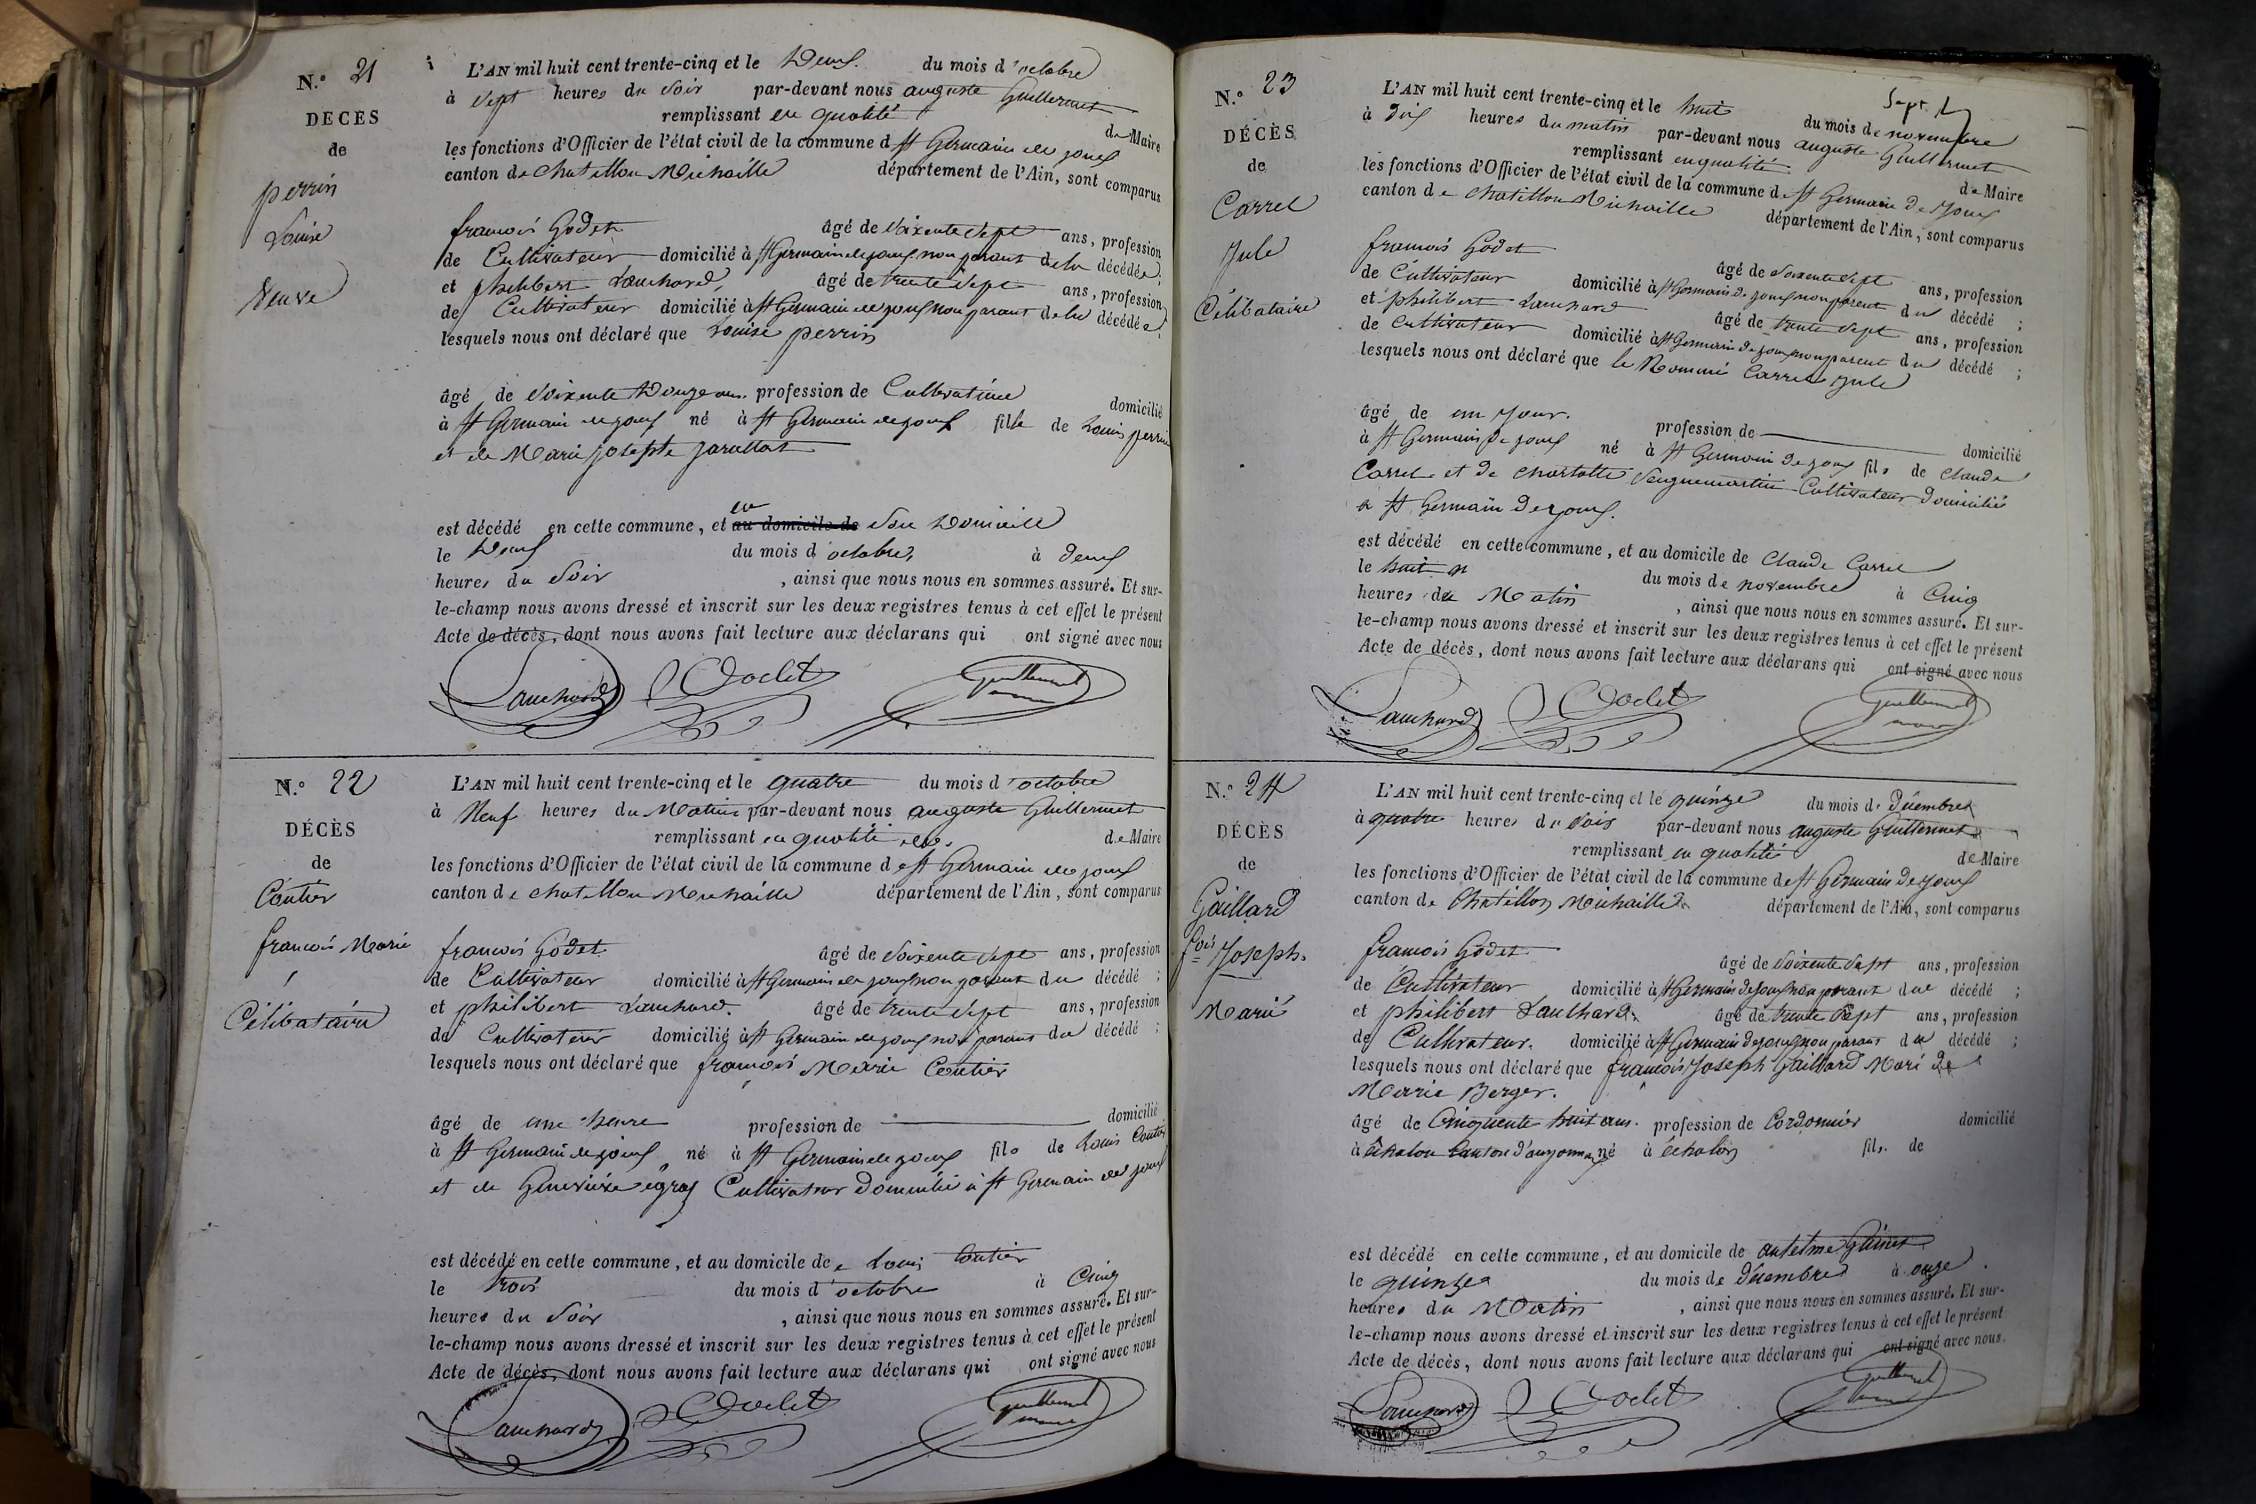 N.° 21
DÉCÈS
de
perrin
Louise
Veuve
L'AN mil huit cent trente-cinq et le Deux du mois d'octobre
à Sept heures du Soir par-devant nous auguste Guillermet
remplissant en qualité de Maire
les fonctions d'Officier de l'état civil de la commune d St Germain de joux
canton de chatillon Michaille département de l'Ain, sont comparus
francois Godet âgé de Soixente Sept ans, profession
de Cultivateur domicilié à St Germain de joux non parant de la décédée;
et philibert Lauchard, âgé de trente Sept ans, profession
de Cultivateur domicilié à St Germain de joux non parant de la décédée;
lesquels nous ont déclaré que Louise perrin
âgé de Soixente Douze ans profession de Cultivatrice domicilié
à St Germain de joux né à St Germain de joux fille de Louis perrin
et de Marie josephte
est décédé en cette commune, et au domicile de en Son Domicile
le Deux du mois d'octobre, à deux
heures du Soir, ainsi que nous nous en sommes assuré. Et sur-
le-champ nous avons dressé et inscrit sur les deux registres tenus à cet effet le présent
Acte de décès, dont nous avons fait lecture aux déclarans qui ont signé avec nous
Lauchard Godet Guillermet maire
N.° 22
DÉCÈS
de
Coutier
francois Marie
Célibataire
L'AN mil huit cent trente-cinq et le quatre du mois d'octobre
à Neuf heures du Matin par-devant nous auguste Guillermet
remplissant en qualité de Maire
les fonctions d'Officier de l'état civil de la commune de St Germain de joux
canton de chatillon Michaille département de l'Ain, sont comparus
francois Godet âgé de Soixente Sept ans, profession
de Cultivateur domicilié à St Germain de joux non parant du décédé;
et philibert Lauchard. âgé de trente Sept ans, profession
de Cultivateur domicilié à St Germain de joux non parant du décédé;
lesquels nous ont déclaré que francois Marie Coutier
âgé de une heure profession de domicilié
à St Germain de joux né à St Germain de joux fils de Louis Coutier
et de Genevieve egraz Cultivateur Domicilié à St Germain de joux
est décédé en cette commune, et au domicile de Louis Coutier
le trois du mois d'octobre à Cinq
heures du Soir, ainsi que nous nous en sommes assuré. Et sur-
le-champ nous avons dressé et inscrit sur les deux registres tenus à cet effet le présent
Acte de décès, dont nous avons fait lecture aux déclarans qui ont signé avec nous
Lauchard Godet Guillermet maire
N.° 23
DÉCÈS
de
Carrel
Jule
Célibataire
L'AN mil huit cent trente-cinq et le huit du mois de novembre
à Dix heures du matin par-devant nous auguste Guillermet
remplissant en qualité de Maire
les fonctions d'Officier de l'état civil de la commune de St Germain de Joux
canton de chatillon Michaille département de l'Ain, sont comparus
francois Godet âgé de Soixente Sept ans, profession
de Cultivateur domicilié à St Germain de joux non parent du décédé;
et philibert Lauchard âgé de trente Sept ans, profession
de Cultivateur domicilié à St Germain de joux non parent du décédé;
lesquels nous ont déclaré que le Nommé Carrel Jule
âgé de un Jour. profession de domicilié
à St Germain De joux né à St Germain De joux fils de Claude
Carrel et de charlotte Seignemartin Cultivateur Domicilié
a St Germain De joux.
est décédé en cette commune, et au domicile de Claude Carrel
le huit du mois de novembre à Cinq
heures du Matin, ainsi que nous nous en sommes assuré. Et sur-
le-champ nous avons dressé et inscrit sur les deux registres tenus à cet effet le présent
Acte de décès, dont nous avons fait lecture aux déclarans qui ont signé avec nous
Lauchard Godet Guillermet maire
N.° 24
DÉCÈS
de
Gaillard
fois Joseph.
Marié
L'AN mil huit cent trente-cinq et le quinze du mois de Décembre
à quatre heures du Soir par-devant nous auguste Guillermet
remplissant en qualité de Maire
les fonctions d'Officier de l'état civil de la commune de St Germain De joux
canton de Chatillon Michaille département de l'Ain, sont comparus
francois Godet âgé de Soixente Sept ans, profession
de Cultivateur domicilié à St Germain de joux non parant du décédé;
et philibert Lauchard, âgé de trente Sept ans, profession
de Cultivateur. domicilié à St Germain de joux non parant du décédé;
lesquels nous ont déclaré que francois Joseph Gaillard Mari de
Marie Berger.
âgé de Cinquente huit ans. profession de Cordonnier domicilié
à échalon Canton d'oyonnax né à échalon fils de
est décédé en cette commune, et au domicile de antelme
le quinze du mois de Décembre à onze
heures du Matin, ainsi que nous nous en sommes assuré. Et sur-
le-champ nous avons dressé et inscrit sur les deux registres tenus à cet effet le présent
Acte de décès, dont nous avons fait lecture aux déclarans qui ont signé avec nous.
Lauchard Godet Guillermet maire